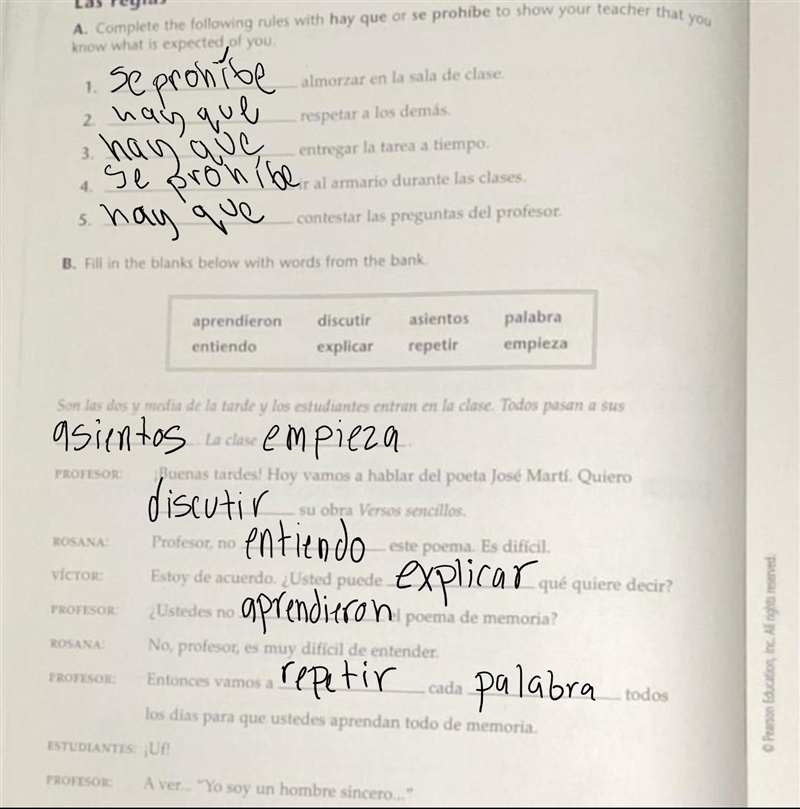 Las reglas
A. Complete the following rules with hay que or se prohíbe to show your teacher that you
know what is expected of you.
1. se prohíbe almorzar en la sala de clase.
2. hay que respetar a los demás.
3. hay que entregar la tarea a tiempo.
4. se prohíbe ir al armario durante las clases.
5. hay que contestar las preguntas del profesor.
B. Fill in the blanks below with words from the bank.
aprendieron discutir asientos palabra
entiendo explicar repetir empieza
Son las dos y media de la tarde y los estudiantes entran en la clase. Todos pasan a sus
asientos. La clase empieza.
PROFESOR: ¡Buenas tardes! Hoy vamos a hablar del poeta José Martí. Quiero
discutir su obra Versos sencillos.
ROSANA: Profesor, no entiendo este poema. Es difícil.
VÍCTOR: Estoy de acuerdo. ¿Usted puede explicar qué quiere decir?
PROFESOR: ¿Ustedes no aprendieron el poema de memoria?
ROSANA: No, profesor, es muy difícil de entender.
PROFESOR: Entonces vamos a repetir cada palabra todos
los días para que ustedes aprendan todo de memoria.
ESTUDIANTES: ¡Uf!
PROFESOR: A ver... "Yo soy un hombre sincero..."
© Pearson Education, Inc. All rights reserved.